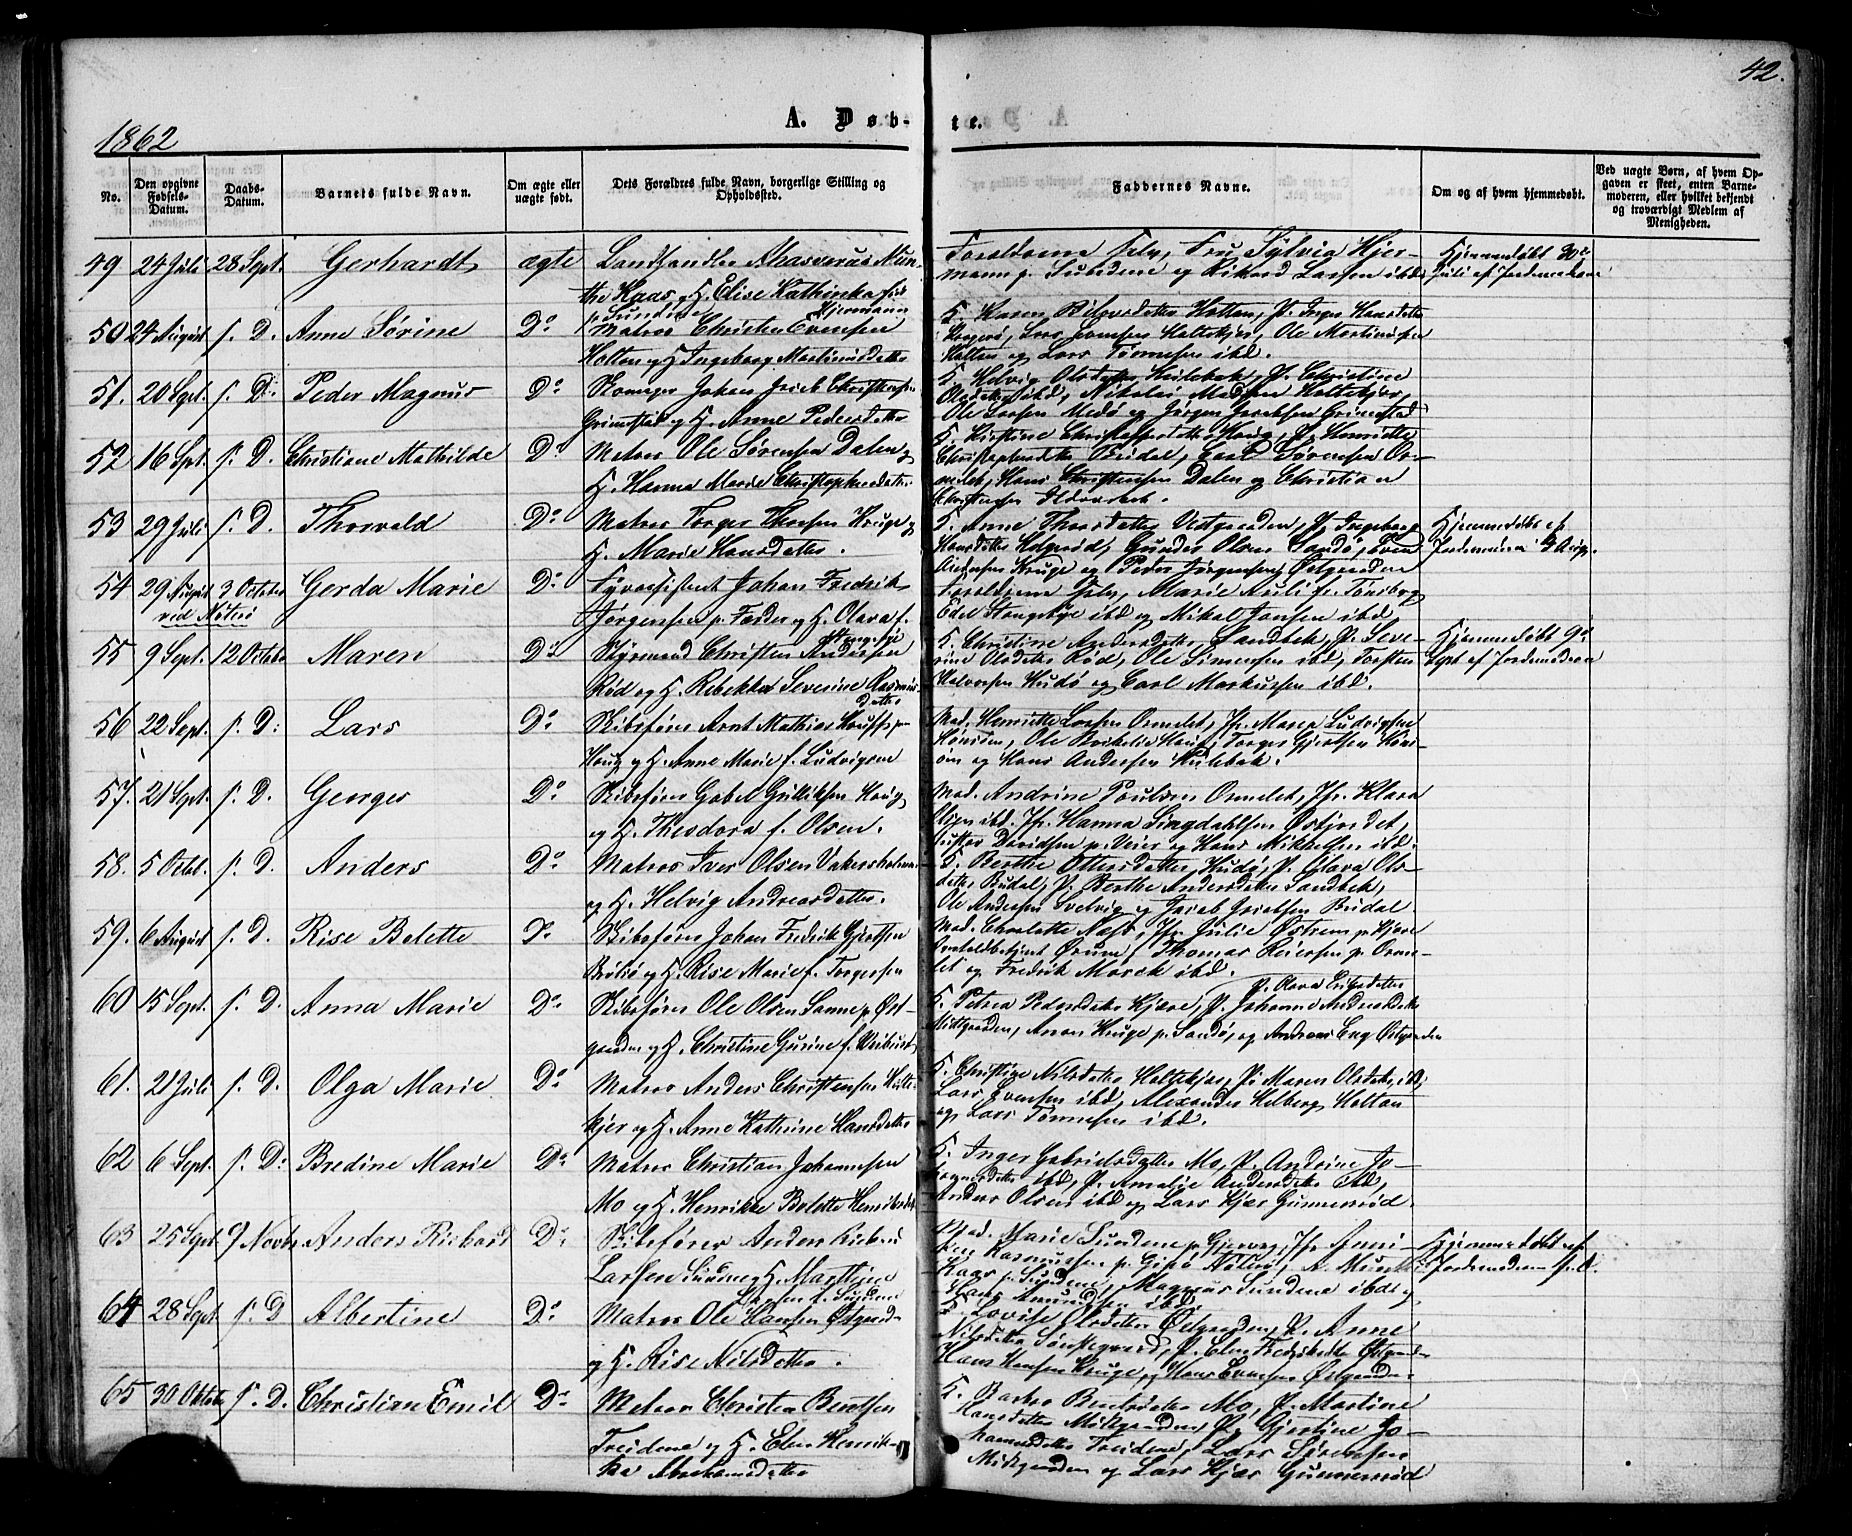 42.
1862
A. Døb-
te.
No.
Den opgivne Fødsels-Datum.
Daabs-Datum.
Barnets fulde Navn.
Om ægte eller uægte født.
Dets Forældres fulde Navn, borgerlige Stilling og Opholdssted.
Faddernes Navne.
Om og af hvem hjemmedøbt.
Ved uægte Børn, af hvem Opgaven er skeet, enten Barnemoderen, eller hvilket bekjendt og troværdigt Medlem af Menigheden.
49 24 Juli 28 Sept. Gerhardt ægte Landhandler Ahasverus Mun-
the Kaas og H. Elise Kathinka
p. Sundene Hjermann
Forældrene selv, Fru Sylvia Hjer-
mann p. Sundene og Rikard Larsen ibd
Hjemmedøbt 30te
Juli af Jordemoderen
50 24 August s. D. Anne Sørine Do Matros Christen Evensen
Holten og H. Ingeborg Martinusdatter
Holten og Lars Tønnesen ibd.
51. 20 Sept. s. D. Peder Magnus Do Johan Jacob Christensen
Grimestad og H. Anne Pedersdatter
K. Helvig Olsdatter Kulebak, P. Christine
Olsdatter ibd, Nikolai Madsen Holtekjær,
Ole Larsen Medø og Jørgen Jacobsen Grimestad
52 16 Sept. s. D. Christiane Mathilde Do Matros Ole Sørensen Dalen og
H. Hanna Marie Christophersdatter
K. Kirstine Christophersdatter Haug, P. Henriette
Christophersdatter Budal, Carl Sørensen Or-
melet, Hans Christensen Dalen og Christian
53 29 Juli s. D. Thorvald Do Matros Torger Thorsen Kruge og
H. Marie Hansdatter.
K. Anne Thorsdatter Vestgaarden, P. Ingeborg
Hansdatter Holgerød, Gunder Olsen Sandø, Even
Andersen Kruge og Peder Jørgensen Østgaarden
Hjemmedøbt af
Jordemoderen 4 Aug.
54 29 August 3 October Gerda Marie Do Fyrassistent Johan Fredrik
ved Nøterø
Jørgensen p. Færder og H. Olava f.
Stangebye
Forældrene selv, Marie Auli fr. Tønsberg
Edel Stangebye ibd og Mikal Jansen ibd
55 9 Sept. 12 Octobr Maren Do Styrmand Christen Andersen
Rød og H. Rebekka Severine Rasmus-
datter
K. Christine Andersdatter Sandbek, P. Seve-
rine Olsdatter Rød, Ole Simensen ibd, Torsten
Halvorsen Hudø og Carl Markussen ibd.
Hjemmedøbt 9de
Sept af Jordemoderen
56 22 Sept. s. D: Lars Do Skibsfører Arnt Mathias Hauff
Haug og H. Anne Marie f. Ludvigsen
Mad. Henriette Larsen Ormelet, Jfr. Maren Ludvigsen
og Hans Andersen Kulebak.
57. 21 Sept. s. D. Georges Do Skibsfører Gabel Gulliksen Haug
og H. Theodora f. Olsen.
Mad. Andrine Paulsen Ormelet, Jfr. Klara
Olsen ibd. Jfr. Hanna Singdahlsen Østjordet,
Gustav Davidsen p. Veier og Hans Mikkelsen ibd.
58. 5 Octbr. s. D. Anders Do Matros Iver Olsen Vakersholmen
og H. Helvig Andreasdatter.
K. Berthe Ottersdatter Hudø, P. Olava Ols-
datter Budal, P. Berthe Andersdatter Sandbek,
Ole Andersen Svelvig og Jacob Jacobsen Budal
59. 6 August s. D. Rise Belette Do Skibsfører Johan Fredrik Gjertsen
Brøtsø og H. Rise Marie f. Torgersen
Mad. Charlotte Næss, Jfr. Julie Østrem p. Kjære
Ørum, Thomas Reiersen p. Orme-
let og Fredrik Marck ibd.
60 15 Sept. s. D. Anna Marie Do Skibsfører Ole Olsen Sanne p. Øst-
gaarden og H. Christine Gurine f.
P. Olava Eriksdatter
K. Petrea Pedersdatter Kjære, P. Johanne Andersdatter
Midtgaarden, Anon Kruge p. Sandø, og Andreas Eng Østgaarden
61. 21 Juli s. D. Olga Marie Do Matros Anders Christensen Holte-
kjær og H. Anne Kathrine Hansdatter
K. Christine Nilsdatter Holtekjær, P. Maren Olsdatter ibd,
Lars Evensen ibd, Alexander Helberg Holtan
og Lars Tønnesen ibd.
62 6 Sept. s. D: Bredine Marie Do Matros Christian Johannesen
Mo og H. Henrikke Belette Henriksdatter
K. Inger Gabrielsdatter Mo, P. Andrine Jo-
hannesdatter ibd, P. Amalie Andersdatter ibd,
Anders Olsen ibd og Lars Kjær Gunnerød.
63 25 Sept. 9 Novbr Anders Richard Do Skibsfører Anders Richard
Larsen Sundene og H. Martine
f. Sundene
Mad. Marie Sundene p. Gjervaag, Jfr. Anni-
ken Rasmussen p. Gipø Nøterø, A. Munthe
Kaas p. Sundene, Magnus Sundene ibd og
Hans Amundsen ibd.
Hjemmedøbt af
Jordemoderen s. D.
64 28 Sept. s. D Albertine Do Matros Ole Hansen Østgaard-
og H. Rise Nilsdatter.
K. Lovise Olsdatter Østgaarden, P. Anne
Nilsdatter Sønstegaard, P. Elen Fredriksdatter Østgaarden
Hans Hansen Kruge, og Hans Evensen Østgaarden.
65 30 Oktobr s. D. Christian Emil Do Matros Christen Berntsen
Treidene og H. Elen Henrik-
ke Abrahamsdatter
K. Barbro Berntsdatter Mo, P. Martine
Hansdatter Midtgaarden, P. Gjertine Jo-
hannesdatter Treidene, Lars Sørensen
Midtgaarden og Lars Kjær Gunnerød